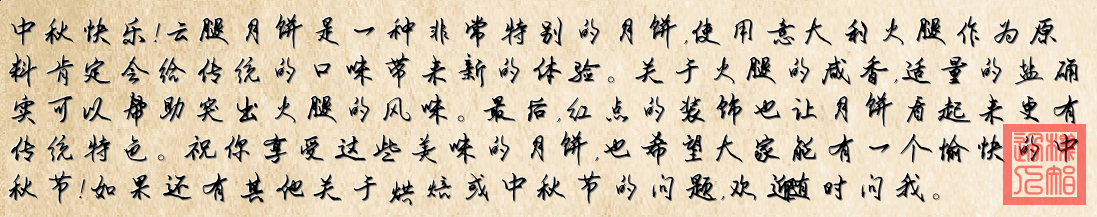 中秋快乐!云腿月饼是一种非常特别的月饼,使用意大利火腿作为原
料肯定会给传统的口味带来新的体验。关于火腿的咸香,适量的盐确
实可以帮助突出火腿的风味。最后,红点的装饰也让月饼看起来更有
传统特色。祝你享受这些美味的月饼,也希望大家能有一个愉快的中
秋节!如果还有其他关于烘焙或中秋节的问题,欢迎随时问我。